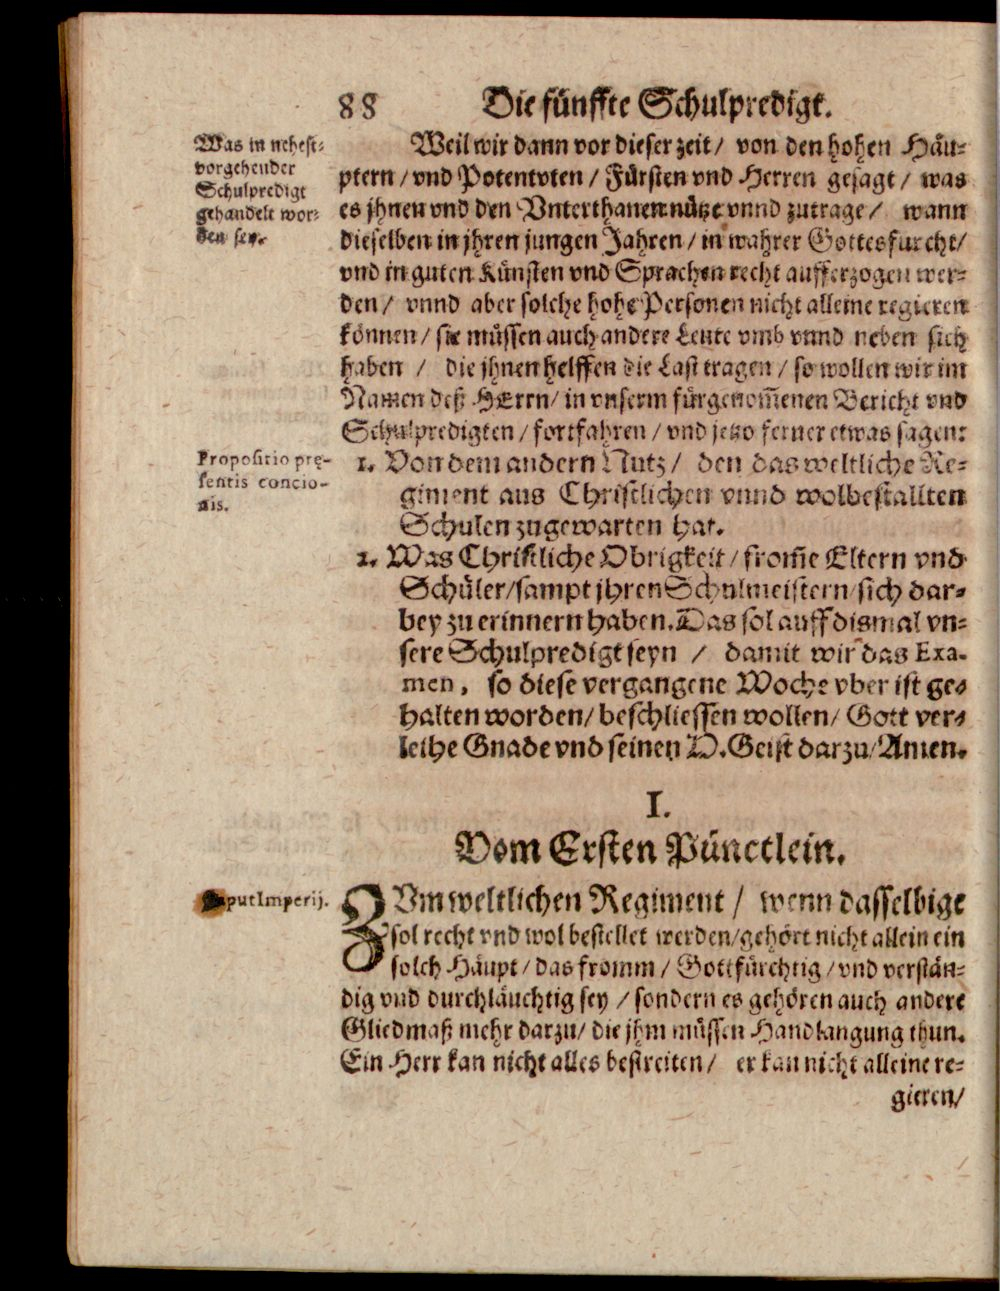 88 Die fünffte Schulpredigt.
Was in nehest-
vorgehender
Schulpredigt
gehandelt wor-
den sey.
Weil wir dann vor dieser zeit / von den hohen Häu-
ptern / vnd Potentvten / Fürsten vnd Herren gesagt / was
es jhnen vnd den Vnterthanen nütze vnnd zutrage / wann
dieselben in jhren jungen Jahren / in wahrer Gottesfurcht /
vnd in guten Künsten vnd Sprachen recht aufferzogen wer-
den / vnnd aber solche hohe Personen nicht alleine regieren
können / sie müssen auch andere Leute vmb vnnd neben sich
haben / die jhnen helffen die Last tragen / so wollen wir im
Namen deß HErrn / in vnserm fürgenom̃enen Bericht vnd
Schulpredigten / fortfahren / vnd jetzo ferner etwas sagen:
Propositio præ-
sentis concio-
nis.
1. Von dem andern Nutz / den das weltliche Re-
giment aus Christlichen vnnd wolbestallten
Schulen zugewarten hat.
2. Was Christliche Obrigkeit / from̃e Eltern vnd
Schüler / sampt jhren Schulmeistern sich dar-
bey zu erinnern haben. Das sol auff dismal vn-
sere Schulpredigt seyn / damit wir das Exa-
men, so diese vergangene Woche vber ist ge-
halten worden / beschliessen wollen / Gott ver-
leihe Gnade vnd seinen H. Geist darzu / Amen.
I.
Vom Ersten Pünctlein.
Caput Imperij.
ZVm weltlichen Regiment / wenn dasselbige
sol recht vnd wol bestellet werden / gehört nicht allein ein
solch Häupt / das fromm / Gottfürchtig / vnd verstän-
dig vnd durchläuchtig sey / sondern es gehören auch andere
Gliedmaß mehr darzu / die jhm müssen Handlangung thun.
Ein Herr kan nicht alles bestreiten / er kan nicht alleine re-
gieren /